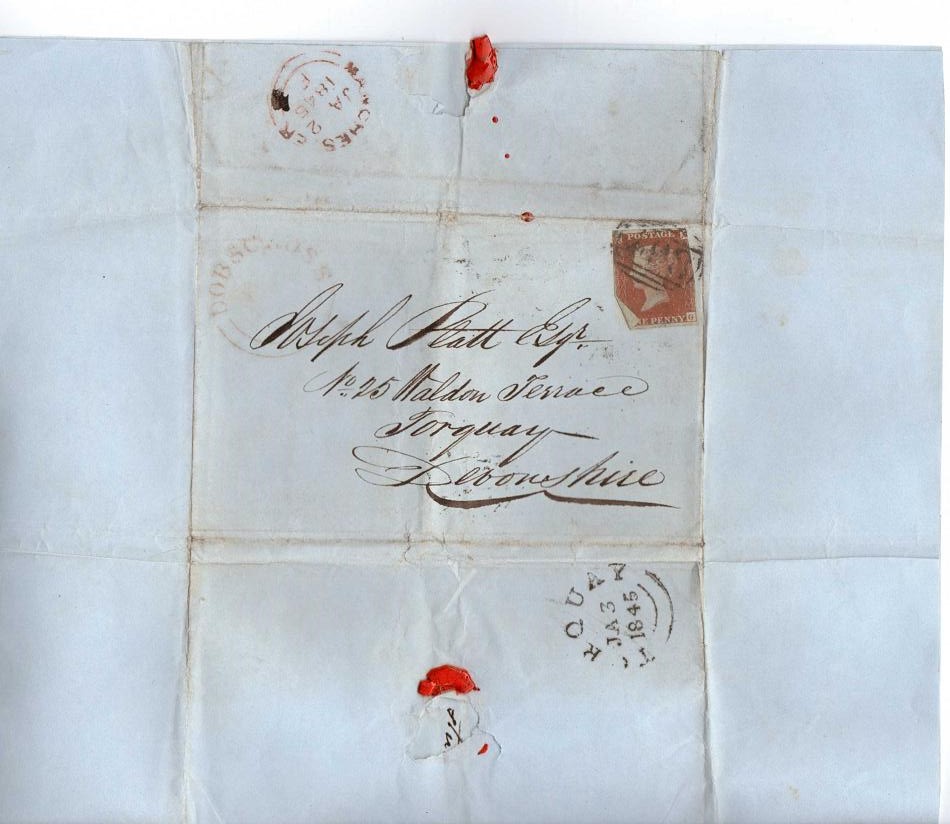 MANCHESTER
JA 2
1845
DOBSCROSS
POSTAGE
E PENNY G
Joseph Platt Esqr.
No. 25 Waldon Terrace
Torquay
Devonshire
RQUAY
JA 3
1845